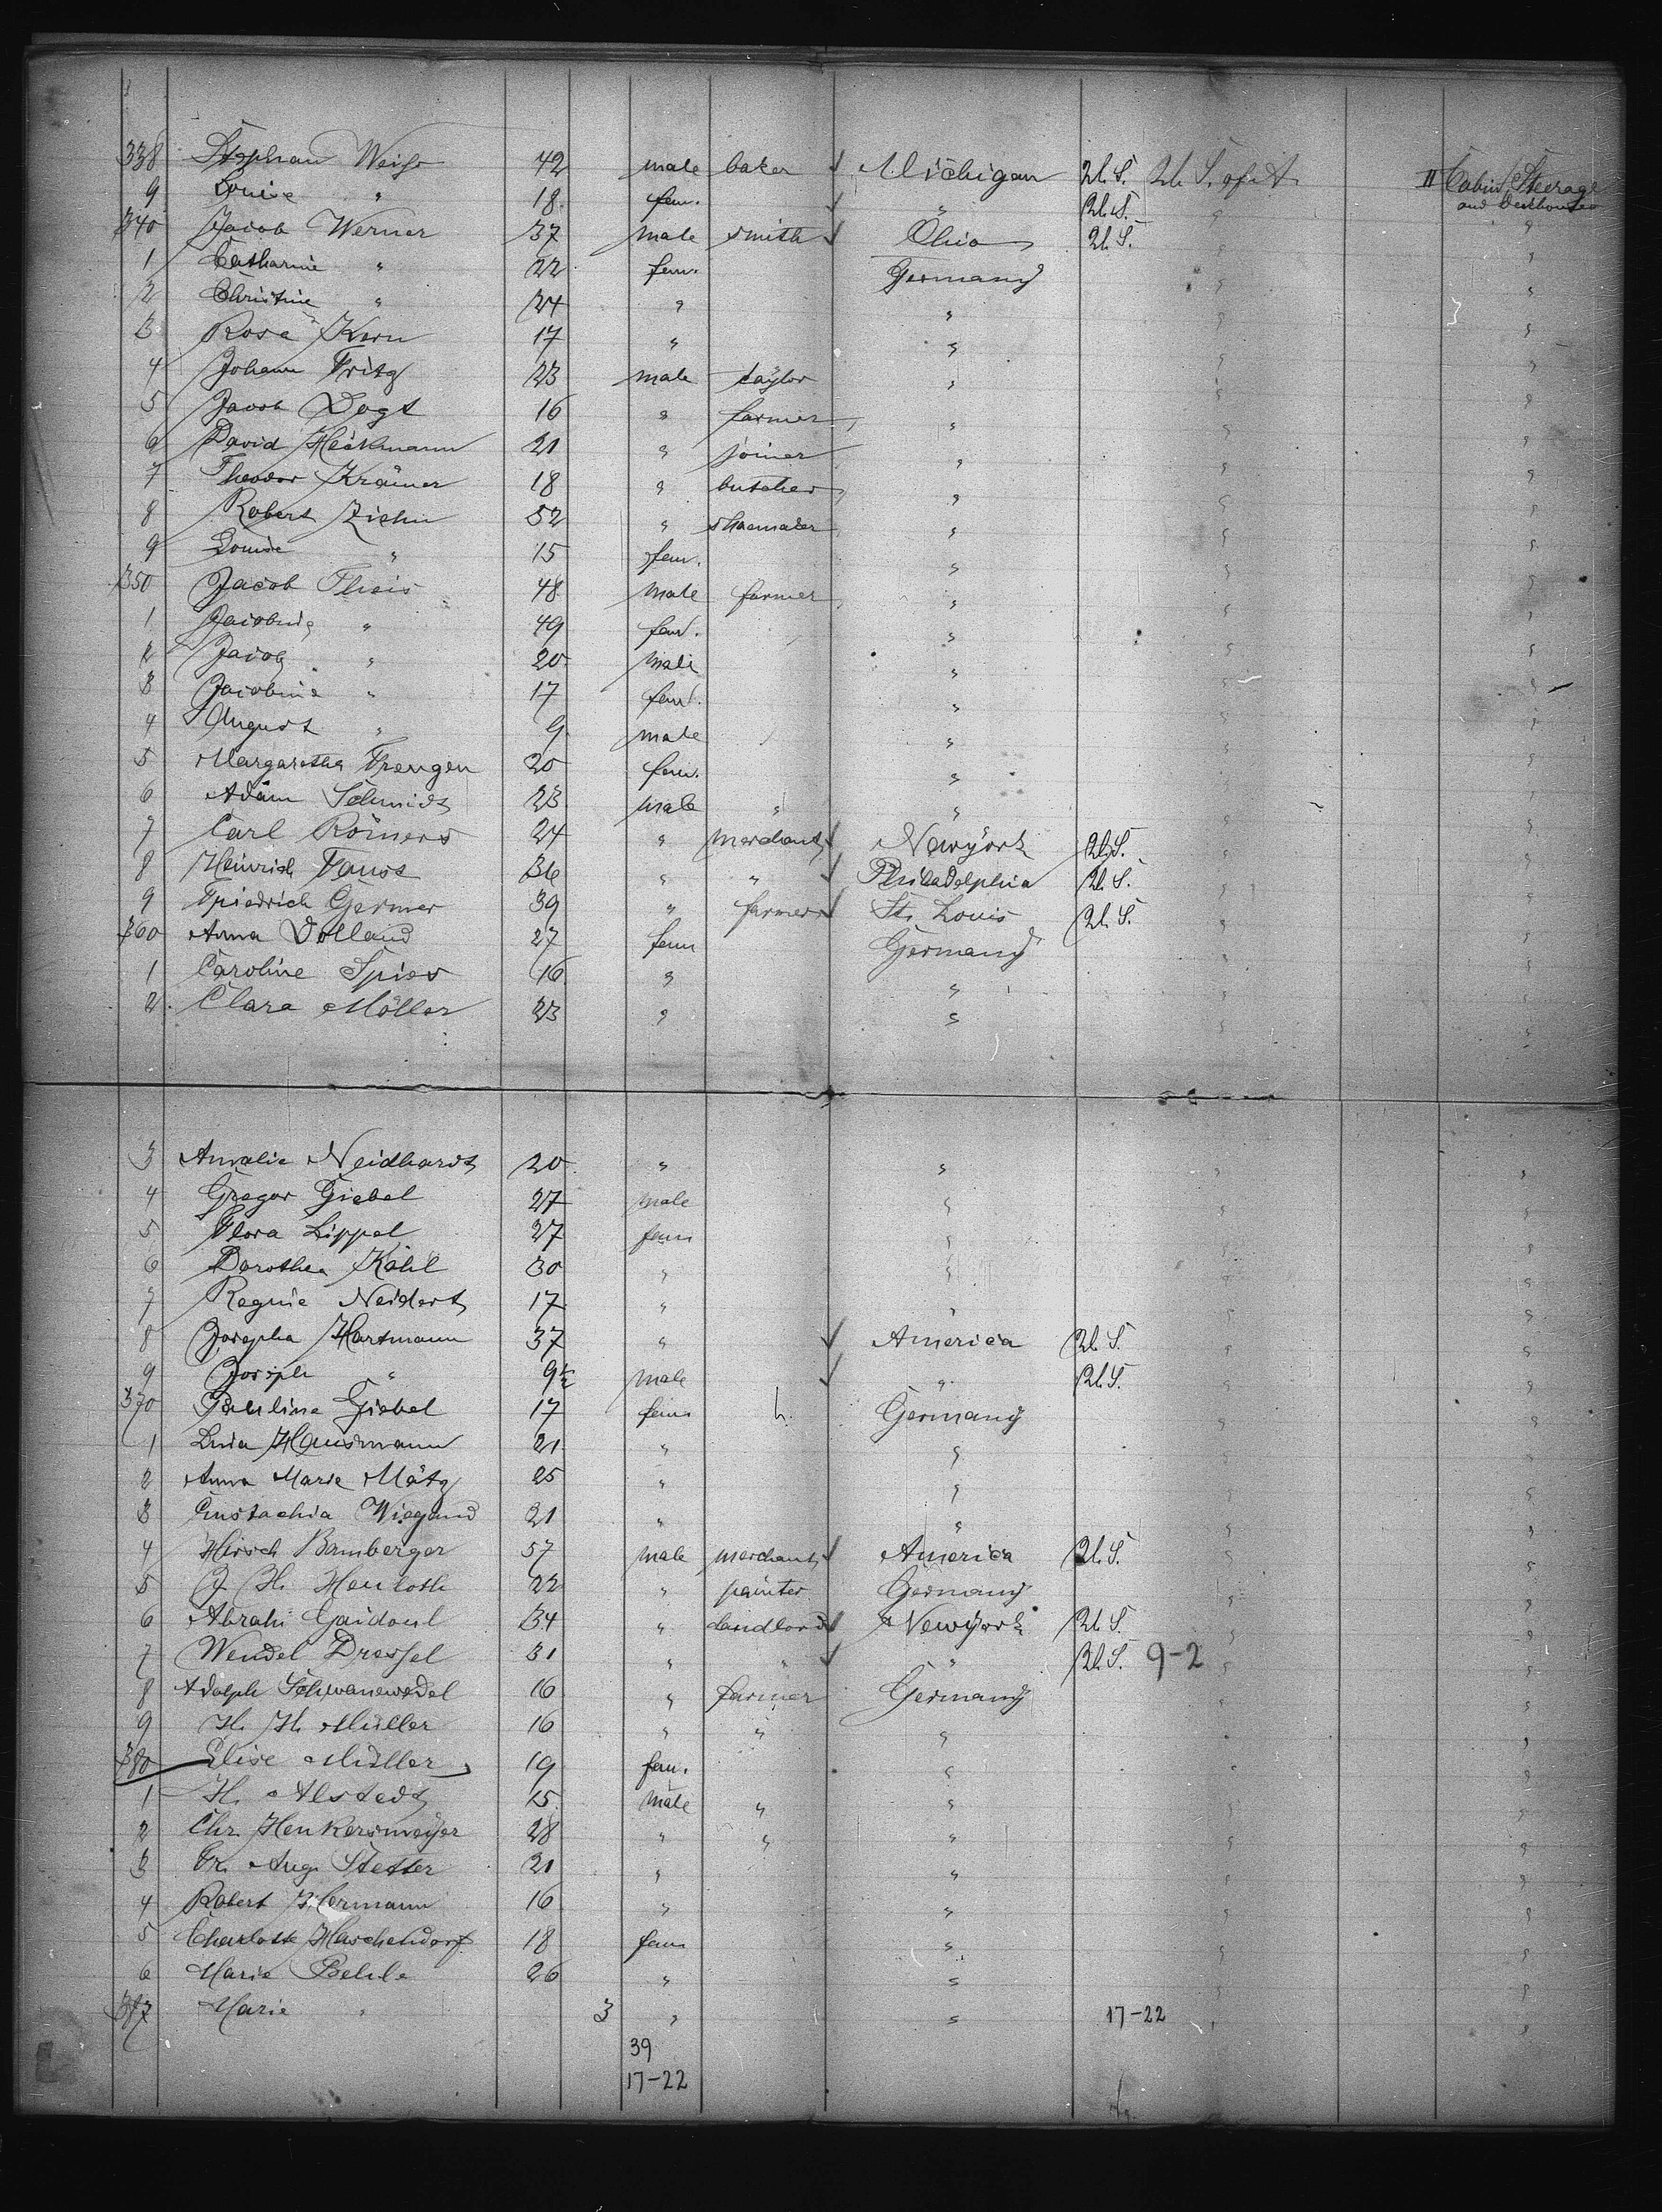 338 Stephan Weiss 42 male baker Michigan U.S. U.S. of A. II Cabin, Steerage
9 Louise " 18 fem. " U.S. " and Deckhouse
340 Jacob Werner 37 male smith Ohio U.S. " "
1 Catharine " 22 fem. Germany " "
2 Christine " 24 " " " "
3 Rosa Kern 17 " " " "
4 Johann Fritz 23 male taylor " " "
5 Jacob Vogt 16 " farmer " " "
6 David Heckmann 21 " joiner " " "
7 Theodor Krämer 18 " butcher " " "
8 Robert Ziehn 52 " shoemaker " " "
9 Louise " 15 fem. " " "
350 Jacob Theis 48 male farmer " " "
1 Jacobine " 49 fem. " " "
2 Jacob " 20 male " " "
3 Jacobine " 17 fem. " " "
4 August " 9 male " " "
5 Margaretha 20 fem. " " "
6 Adam Schmidt 23 male " " " "
7 Carl Römers 24 " merchant Newyork U.S. " "
8 Heinrich Faust 36 " " Philadelphia U.S. " "
9 Friedrich Germer 39 " farmer St. Louis U.S. " "
360 Anna Volland 27 fem Germany " "
1 Caroline Spies 16 " " " "
2 Clara Möller 23 " " " "
3 Amalie Neidhardt 20 " " " "
4 Gregor Giebel 27 male " " "
5 Flora Lippel 27 fem " " "
6 Dorothea Köhl 30 " " " "
7 Regine Neidert 17 " " " "
8 Josepha Hartmann 37 " America U.S. " "
9 Joseph " 9½ male " U.S. " "
370 Pauline Giebel 17 fem Germany " "
1 Hausmann 21 " " " "
2 Anna Marie Mätz 25 " " " "
3 Eustachia Wiegand 21 " " " "
4 Hirsch Bamberger 57 male merchant America U.S. " "
5 J. H. 22 " painter Germany " "
6 Abrah. 34 " landlord Newyork U.S. " "
7 Wendel Dressel 31 " " " U.S. 9-2 " "
8 Adolph Schwanewedel 16 " farmer Germany " "
9 H. H. Müller 16 " " " " "
380 Elise Müller 19 fem. " " "
1 H. Alstedt 15 male " " " "
2 Chr. Henkersmeyer 28 " " " " "
3 Fr. Aug. Stetter 21 " " " "
4 Robert Hermann 16 " " " "
5 Charlotte Haschendorf 18 fem " " "
6 Marie Behle 26 " " " "
387 Marie " 3 " " 17-22 " "
39
17-22